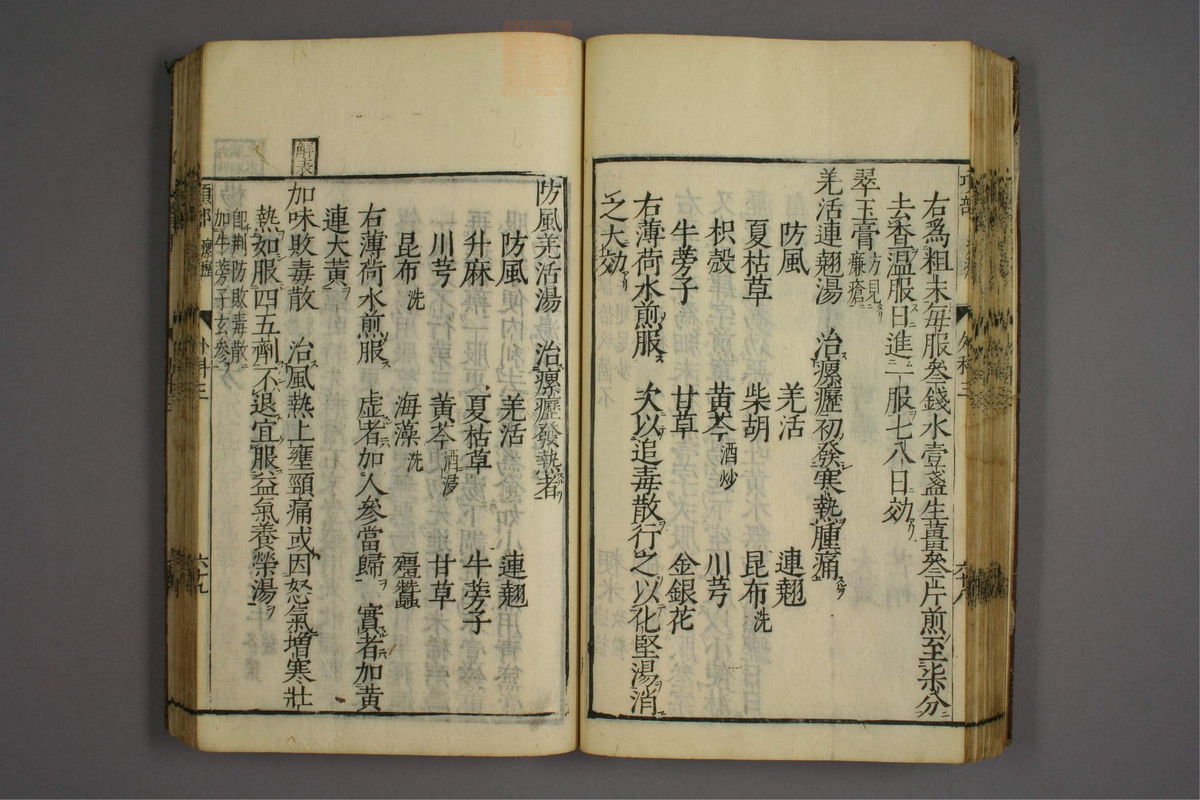 右爲粗末毎服叁錢水壹盞生薑叁片煎至柒分
去査溫服日進二服七八日効
翠玉膏 方見癰瘡
羌活連翹湯 治瘰癧初發寒熱腫痛
防風 羌活 連翹
夏枯草 柴胡 昆布洗
枳殻 黄芩酒炒 川芎
牛蒡子 甘草 金銀花
右薄荷水煎服 次以追毒散行之以化堅湯消
之大効
防風羌活湯 治瘰癧發熱者
防風 羌活 連翹
升麻 夏枯草 牛蒡子
川芎 黄芩酒浸 甘草
昆布洗 海藻洗 殭蠶
右薄荷水煎服 虚者加人參當歸 實者加黄
連大黄
解表
加味敗毒散 治風熱上壅頸痛或因怒氣増寒壯
熱如服四五劑不退宜服益氣養榮湯
即荆防敗毒散
加牛蒡子玄參
項部 瘰癧 外科三 六十九